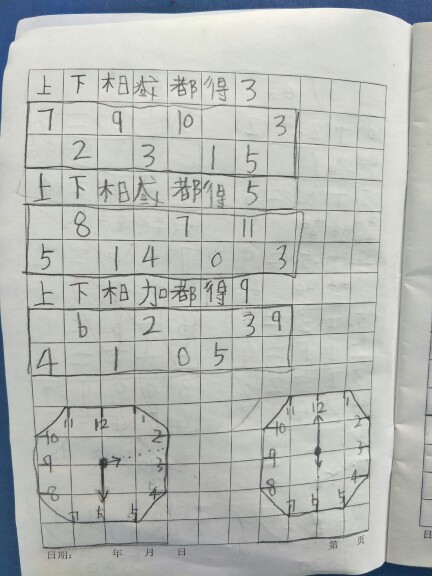 上下相减都得3
7 9 10 3
2 3 1 5
上下相减都得5
8 7 11
5 1 4 0 3
上下相加都得9
6 2 3 9
4 1 0 5
11 12 1 11 12 1
10 2 10 2
9 3 9 3
8 4 8 4
7 6 5 7 6 5
日期: 年 月 日 第 页